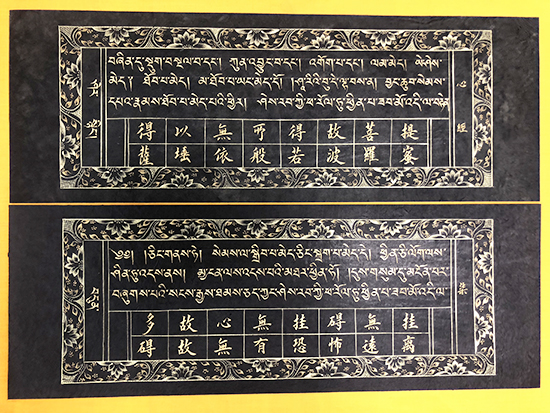 བཞིན་དུ་སྡུག་བསྔལ་བ་དང་། ཀུན་འབྱུང་བ་དང་། འགོག་པ་དང་། ལམ་མེད། ཡེ་ཤེས་
མེད། ཐོབ་པ་མེད། མ་ཐོབ་པ་ཡང་མེད་དོ། །ཤཱ་རིའི་བུ་དེ་ལྟ་བས་ན། བྱང་ཆུབ་སེམས་
དཔའ་རྣམས་ཐོབ་པ་མེད་པའི་ཕྱིར། ཤེས་རབ་ཀྱི་ཕ་རོལ་ཏུ་ཕྱིན་པ་ཟབ་མོ་འདི་ལ་བརྟེན་
得以無所得故菩提
薩埵依般若波羅蜜
心經
༄༅། །ཅིང་གནས་ཏེ། སེམས་ལ་སྒྲིབ་པ་མེད་ཅིང་སྐྲག་པ་མེད་དེ། ཕྱིན་ཅི་ལོག་ལས་
ཤིན་ཏུ་འདས་ནས། མྱ་ངན་ལས་འདས་པའི་མཐར་ཕྱིན་ཏོ། །དུས་གསུམ་དུ་རྣམ་པར་
བཞུགས་པའི་སངས་རྒྱས་ཐམས་ཅད་ཀྱང་ཤེས་རབ་ཀྱི་ཕ་རོལ་ཏུ་ཕྱིན་པ་ཟབ་མོ་འདི་ལ་
多故心無挂碍無挂
碍故無有恐怖遠離